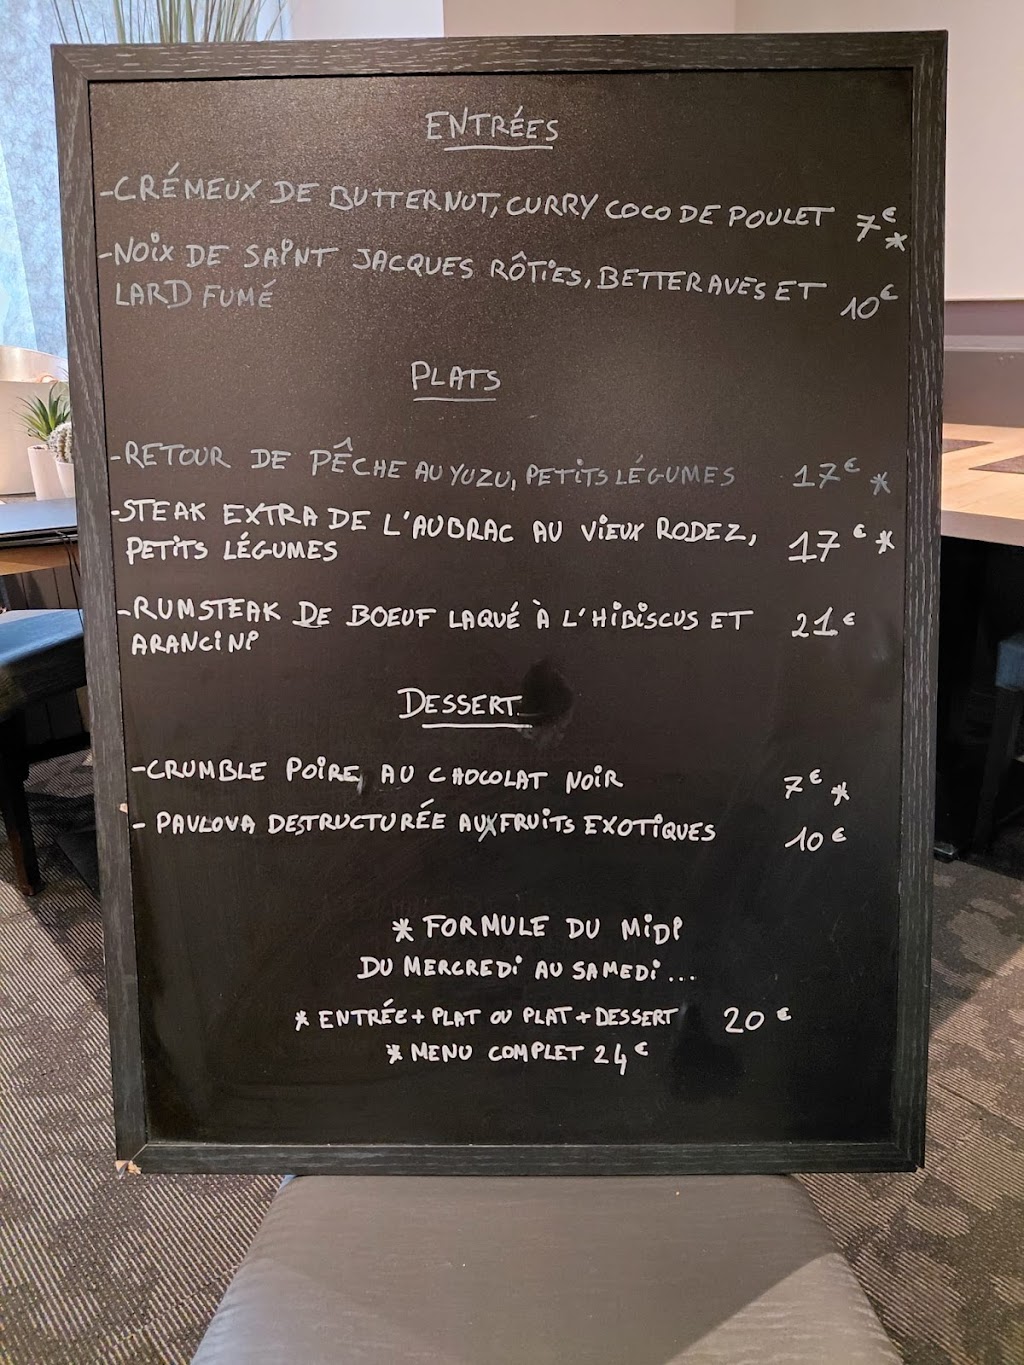 ENTRÉES
-CRÉMEUX DE BUTTERNUT, CURRY COCO DE POULET 7€ *
-NOIX DE SAINT JACQUES RÔTIES, BETTERAVES ET 10€
LARD FUMÉ
PLATS
-RETOUR DE PÊCHE AU YUZU, PETITS LÉGUMES 17€ *
-STEAK EXTRA DE L'AUBRAC AU VIEUX RODEZ, 17€ *
PETITS LÉGUMES
-RUMSTEAK DE BOEUF LAQUÉ À L'HIBISCUS ET 21€
ARANCINI
DESSERT
-CRUMBLE POIRE, AU CHOCOLAT NOIR 7€ *
- PAVLOVA DESTRUCTURÉE AUX FRUITS EXOTIQUES 10€
* FORMULE DU MIDI
DU MERCREDI AU SAMEDI...
* ENTRÉE + PLAT OU PLAT + DESSERT 20€
* MENU COMPLET 24€